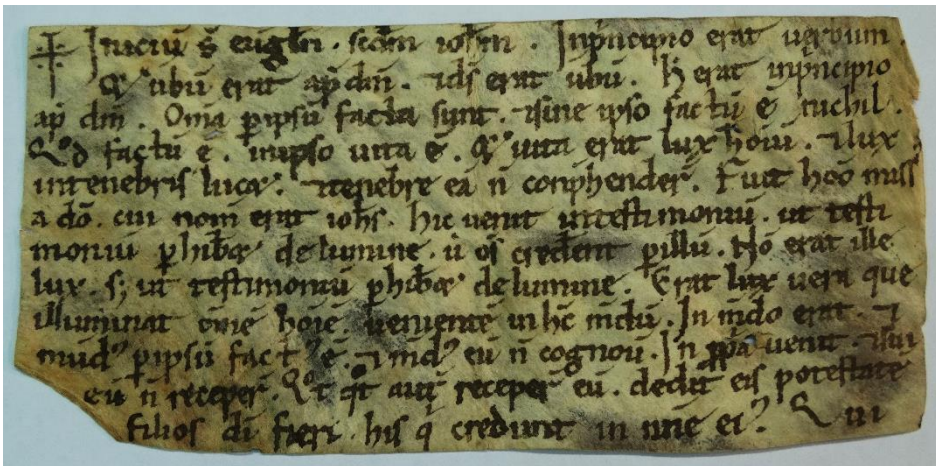 ☩ Iniciū s̄ euḡln̄ . scd̄m ioh̄m . Inp̄ncipio erat uerbum .
& ubū erat ap̄ dm̄ . ⁊ds̄ erat ubū . h̄ erat inp̄ncipio
ap̄ dm̄ . Om̄a p̄ipsū facta sunt . ⁊sine ipso factū ē nichil .
Qd̄ factū ē . inipso uita ē . & uita erat lux hōiū . ⁊ lux
intenebris luc& . ⁊tenebre eā n̄ conp̄hender̄ . Fuit hōō miss᷒
a dō . cui nom̄ erat ioh̄s . hic uenit intestimoniū . ut testi
moniū p̄hib& de lumine . ū os̄ credent p̄illū . Nō erat ille
lux . s; ut testimoniū p̄hib& de lumine . Erat lux uera que
illuminat ōmē hōīe . uenientē in hc̄ mdū . In mdo erat . ⁊
mūdꝰ p̄ipsū factꝰ ē . ⁊ mdꝰ eū n̄ cognou . In ppa uenit ⁊sui
eū n̄ receper̄ . Qt qt autē receper̄ eū . dedit eis potestatē
filios dī fieri . his q̄ credunt in nn̄e eiꝰ . Qui